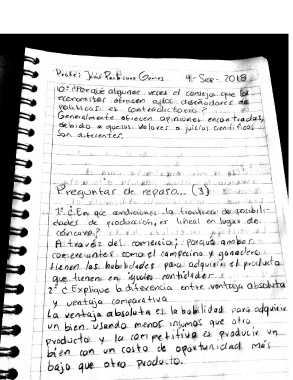 4-Sep-2018
10º ¿Por qué algunas veces el consejo que los
economistas ofrecen a los diseñadores de
políticas es contradictorio?
Generalmente ofrecen opiniones encontradas,
debido a que los valores o juicios científicos
son diferentes.
Preguntas de repaso... (3)
1º ¿En qué condiciones la frontera de posibili-
dades de producción, es lineal en lugar de
cóncava?
A través del comercio; porque ambos
comerciantes como el campesino y ganadero
tienen las habilidades para adquirir el producto
que tienen en iguales cantidades.
2º ¿Explique la diferencia entre ventaja absoluta
y ventaja comparativa
La ventaja absoluta es la habilidad para adquirir
un bien usando menos insumos que otro
producto y la competitiva es producir un
bien con un costo de oportunidad más
bajo que otro producto.